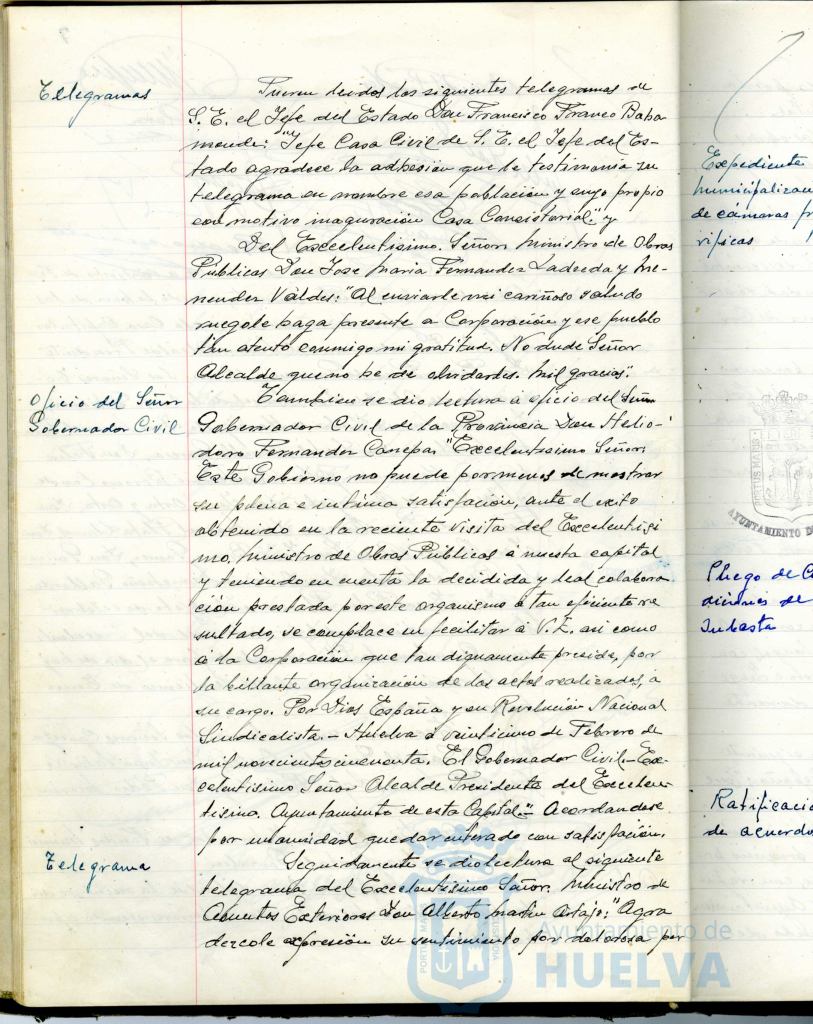 Telegramas
Fueron leidos los siguientes telegramas de
S. E. el Jefe del Estado Don Francisco Franco Baha
monde: "Jefe Casa Civil de S. E. el Jefe del Es-
tado agradece la adhesión que le testimonia su
telegrama en nombre esa población y suyo propio
con motivo inaguración Casa Consistorial." y
Del Excelentisimo. Señor Ministro de Obras
Públicas Don Jose Maria Fernandez Ladreda y Me-
nendez Valdes: "Al enviarle mi cariñoso saludo
ruegole haga presente a Corporación y ese pueblo
tan atento conmigo mi gratitud. No dude Señor
Alcalde que no he de olvidarles. Mil gracias".
Oficio del Señor
Gobernador Civil
Tambien se dio lectura a oficio del Señor
Gobernador Civil de la Provincia Don Helio-
doro Fernandez Canepa: "Excelentisimo Señor:
Este Gobierno no puede por menos de mostrar
su plena e intima satisfación, ante el exito
obtenido en la reciente visita del Excelentisi
mo. Ministro de Obras Públicas a nuesta capital
y teniendo en cuenta la decidida y leal colabora
ción prestada por este organismo a tan eficiente re
sultado, se complace en fecilitar á V. E. asi como
a la Corporación que tan dignamente preside, por
la billante organización de los actos realizados, a
su cargo. Por Dios España y su Revolución Nacional
Sindicalista.- Huelva a veintiuno de Febrero de
mil novecientos cincuenta. El Gobernador Civil.- Ex-
celentisimo Señor Alcalde Presidente del Excelen-
tisimo. Ayuntamiento de esta Capital."- Acordandose
por unanimidad quedar enterado con satisfación.
Telegrama
Seguidamente se dio lectura al siguiente
telegrama del Excelentisimo Señor. Ministro de
Asuntos Exteriores Don Alberto Martin Artajo: "Agra
dezcole expresión su sentimiento por dolorosa per
Expediente
municipalizac
de cámaras fr
rificas
AYUNTAMIENTO D
Pliego de Co
diciones de
Subasta
Ratificació
de acuerdo
Ayuntamiento de
HUELVA